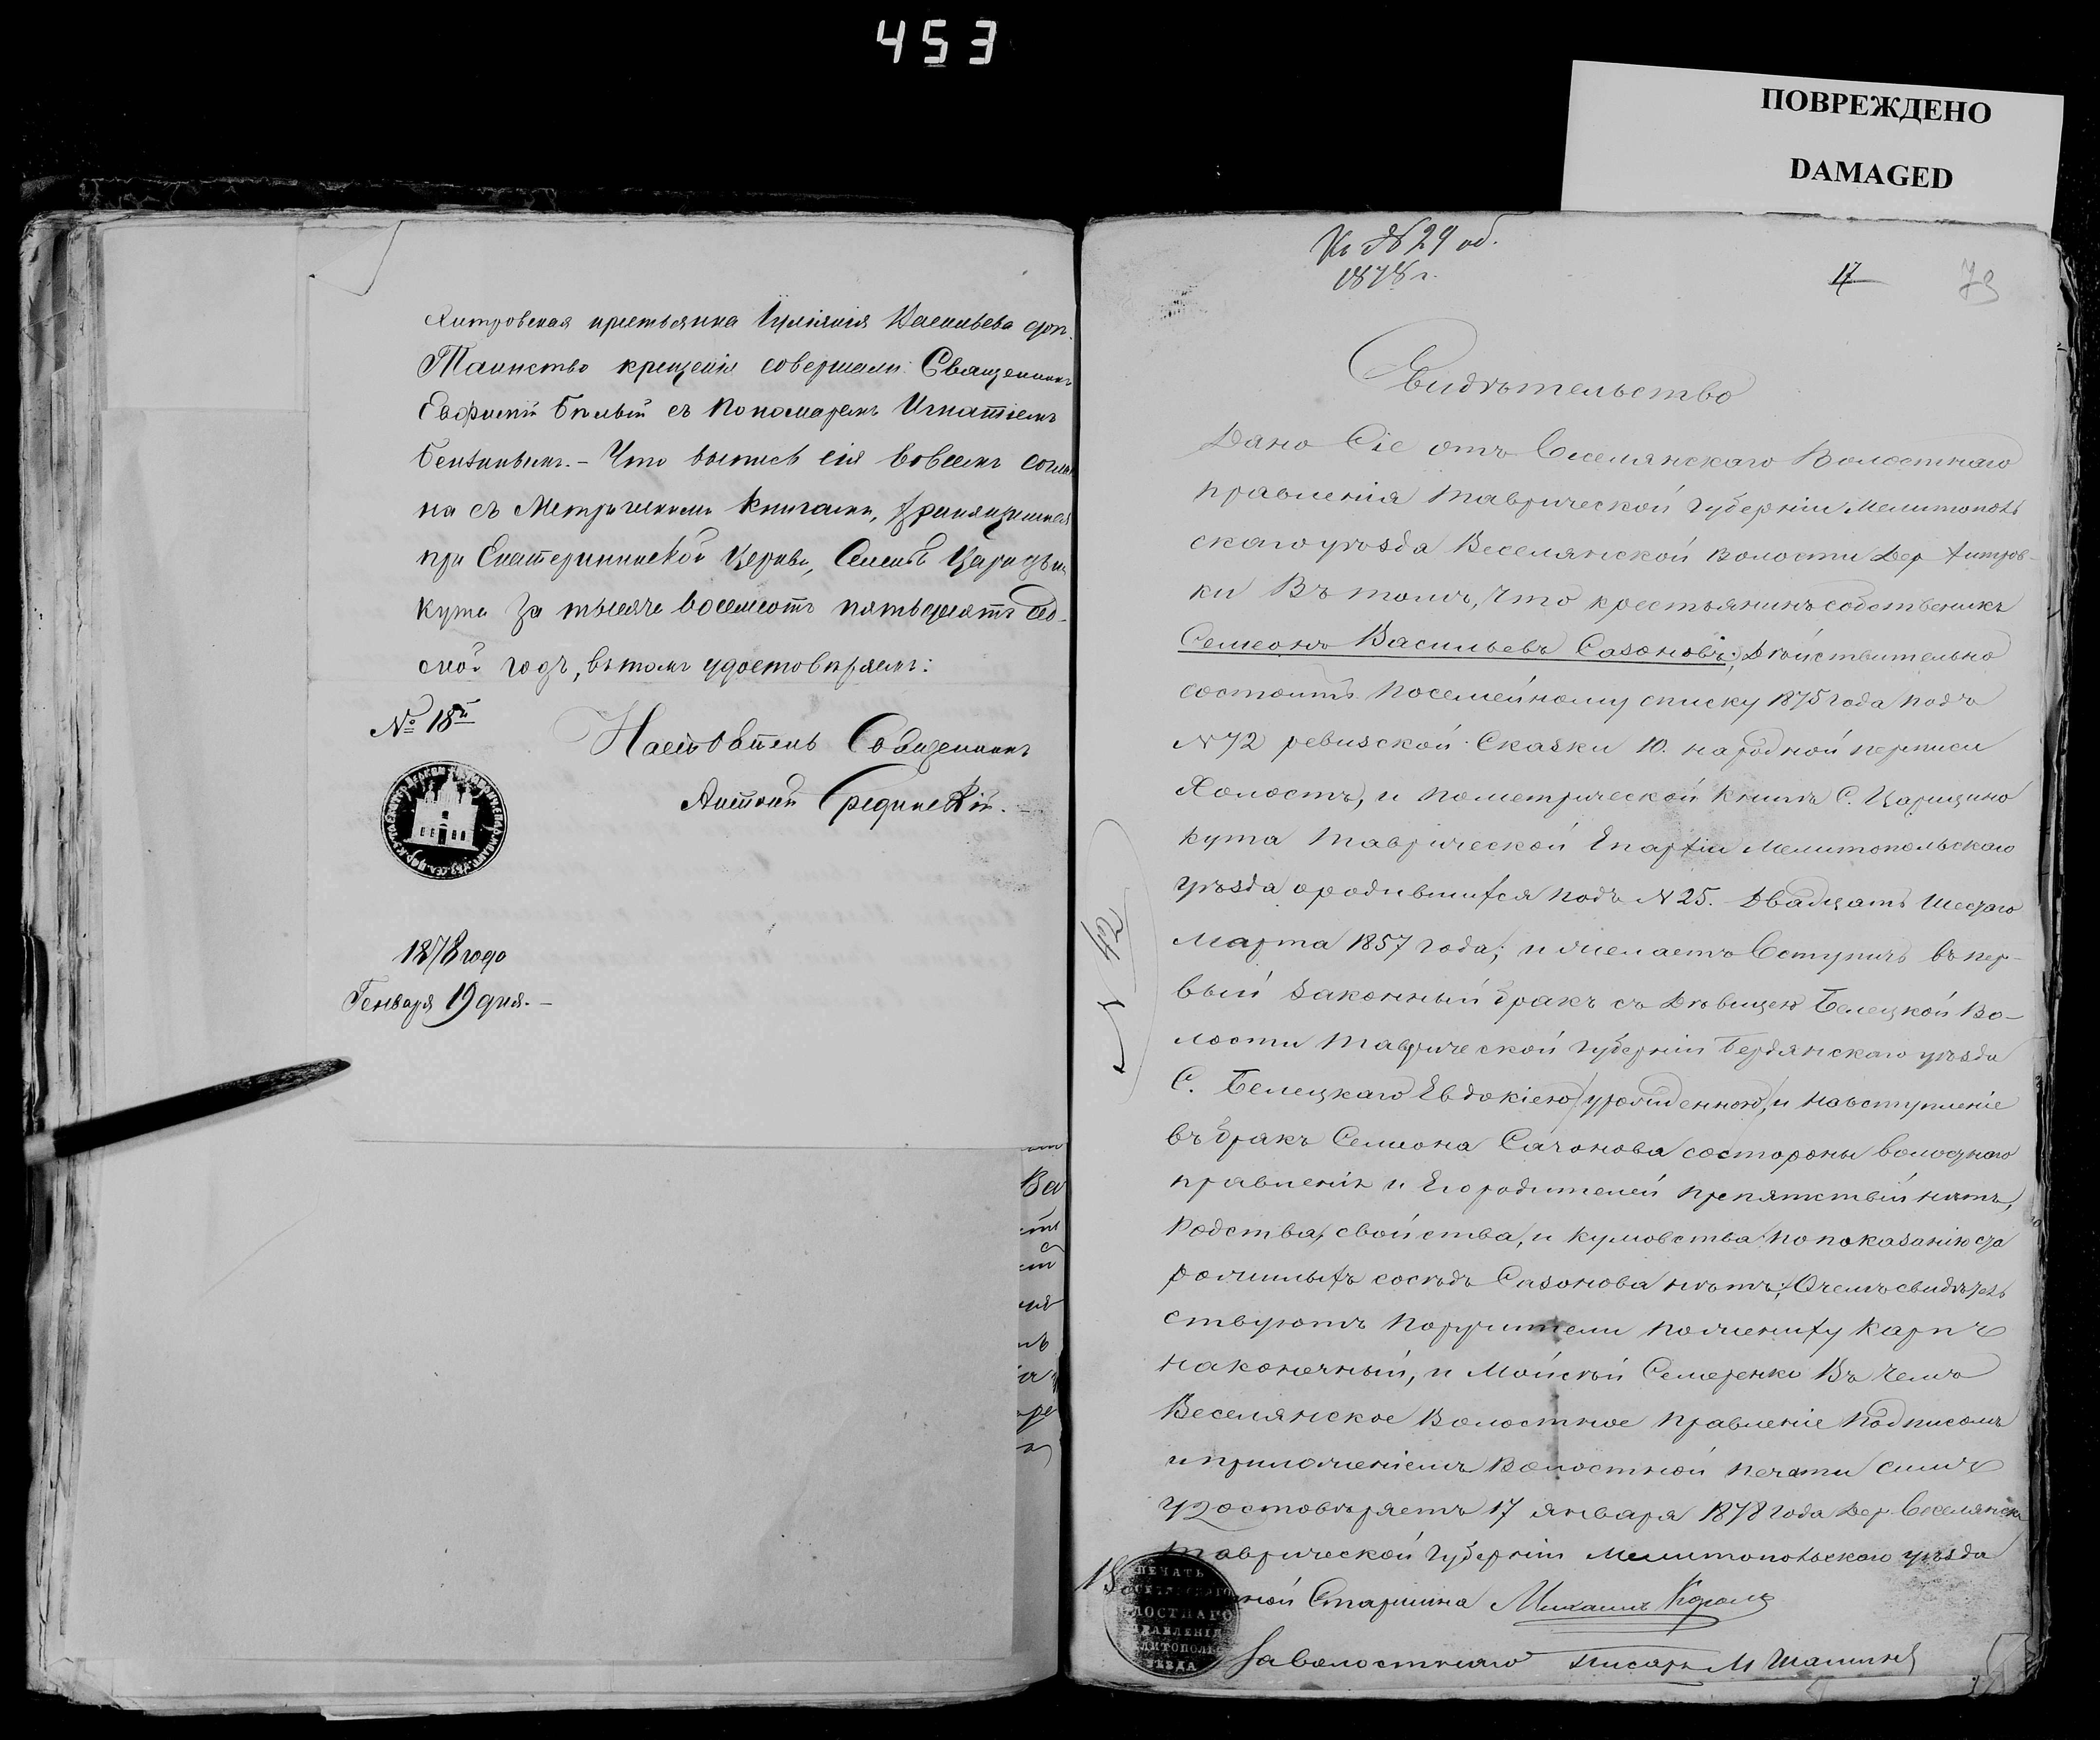 453
ПОВРЕЖДЕНО
DAMAGED
Хитровская крестьянка Іуліянія Васильева
Таинство крещенія совершали: Священникъ
Евфимій Бѣлый съ Пономаремъ Игнатіемъ
Что выпись сія вовсемъ соглас
на съ Метрическими книгами, хранящимися
при Екатерининской Церкви, Селенія Царицына
кута за тысяча восемсотъ пятьдесятъ сед-
мой годъ, въ томъ удостовѣряемъ:
№ 18й
Настоятель Священникъ
Антоній Срединскій.
1878 года
Генваря 19 дня. –
Къ № 29 об.
1878 г.
17
73
Свидѣтельство
Дано Сіе отъ Веселянскаго Волостнаго
правленія Таврической Губерніи Мелитополь
скаго уѣзда Веселянской волости Дер Хитров-
ки Въ томъ, что крестьянинъ собственикъ
Семеонъ Васильевъ Сазоновъ; Дѣйствительно
состоитъ посемейному списку 1875 года подъ
N 72 ревизской Сказки 10. народной переписи
Холостъ, и пометрической книгѣ С. Царицино
кута Таврической Епархіи Мелитопольскаго
уѣзда ородившихся подъ N 25. Двадцать шестаго
Марта 1857 года; и желаетъ Вступить въ пер-
вый законный бракъ съ Дѣвицею Белецкой Во-
лости Таврической губерніи Бердянскаго уѣзда
С. Белецкаго Евдокіею урожденною, и навступленіе
въ бракъ Семиона Сазонова состороны волостнаго
правленія и Его родителей препятствій нѣтъ,
Родства, свойства, и кумовства попоказанію ста
рожилыхъ сосѣдъ Сазонова нѣтъ; Очемъ свидѣтель
ствуютъ Поручители поженихѣ Карпъ
Наконечный, и Мойсѣй Семеренко Въ чемъ
Веселянское Волостное Правленіе подписомъ
и приложеніемъ Волостной печати симъ
удостовѣряетъ 17 января 1878 года Дер. Веселянска
Таврической губерніи Мелитопольскаго уѣзда
ной Старшина Михаилъ Король
За волостнаго писаря М Шапинъ
N 42
ПЕЧАТЬ
ЛОСТНАГО
РАВЛЕНІЯ
ЛИТОПОЛЬ
УѢЗДА